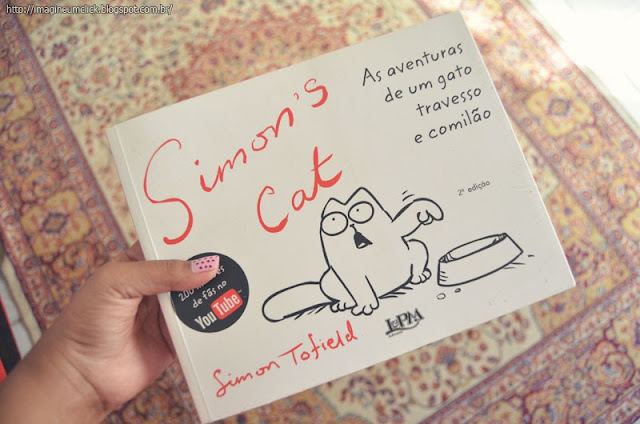 http://imagineumclick.blogspot.com.br/
Simon's
Cat
As aventuras
de um gato
travesso
e comilão
2ª edição
200
de fãs no
YouTube
Simon Tofield
L&PM